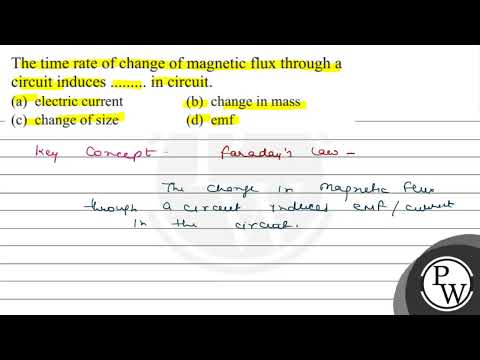 The time rate of change of magnetic flux through a
circuit induces ......... in circuit.
(a) electric current (b) change in mass
(c) change of size (d) emf
Key Concept - Faraday's Law -
The change in magnetic flux
through a circuit induces emf/current
in the circuit.
P
W